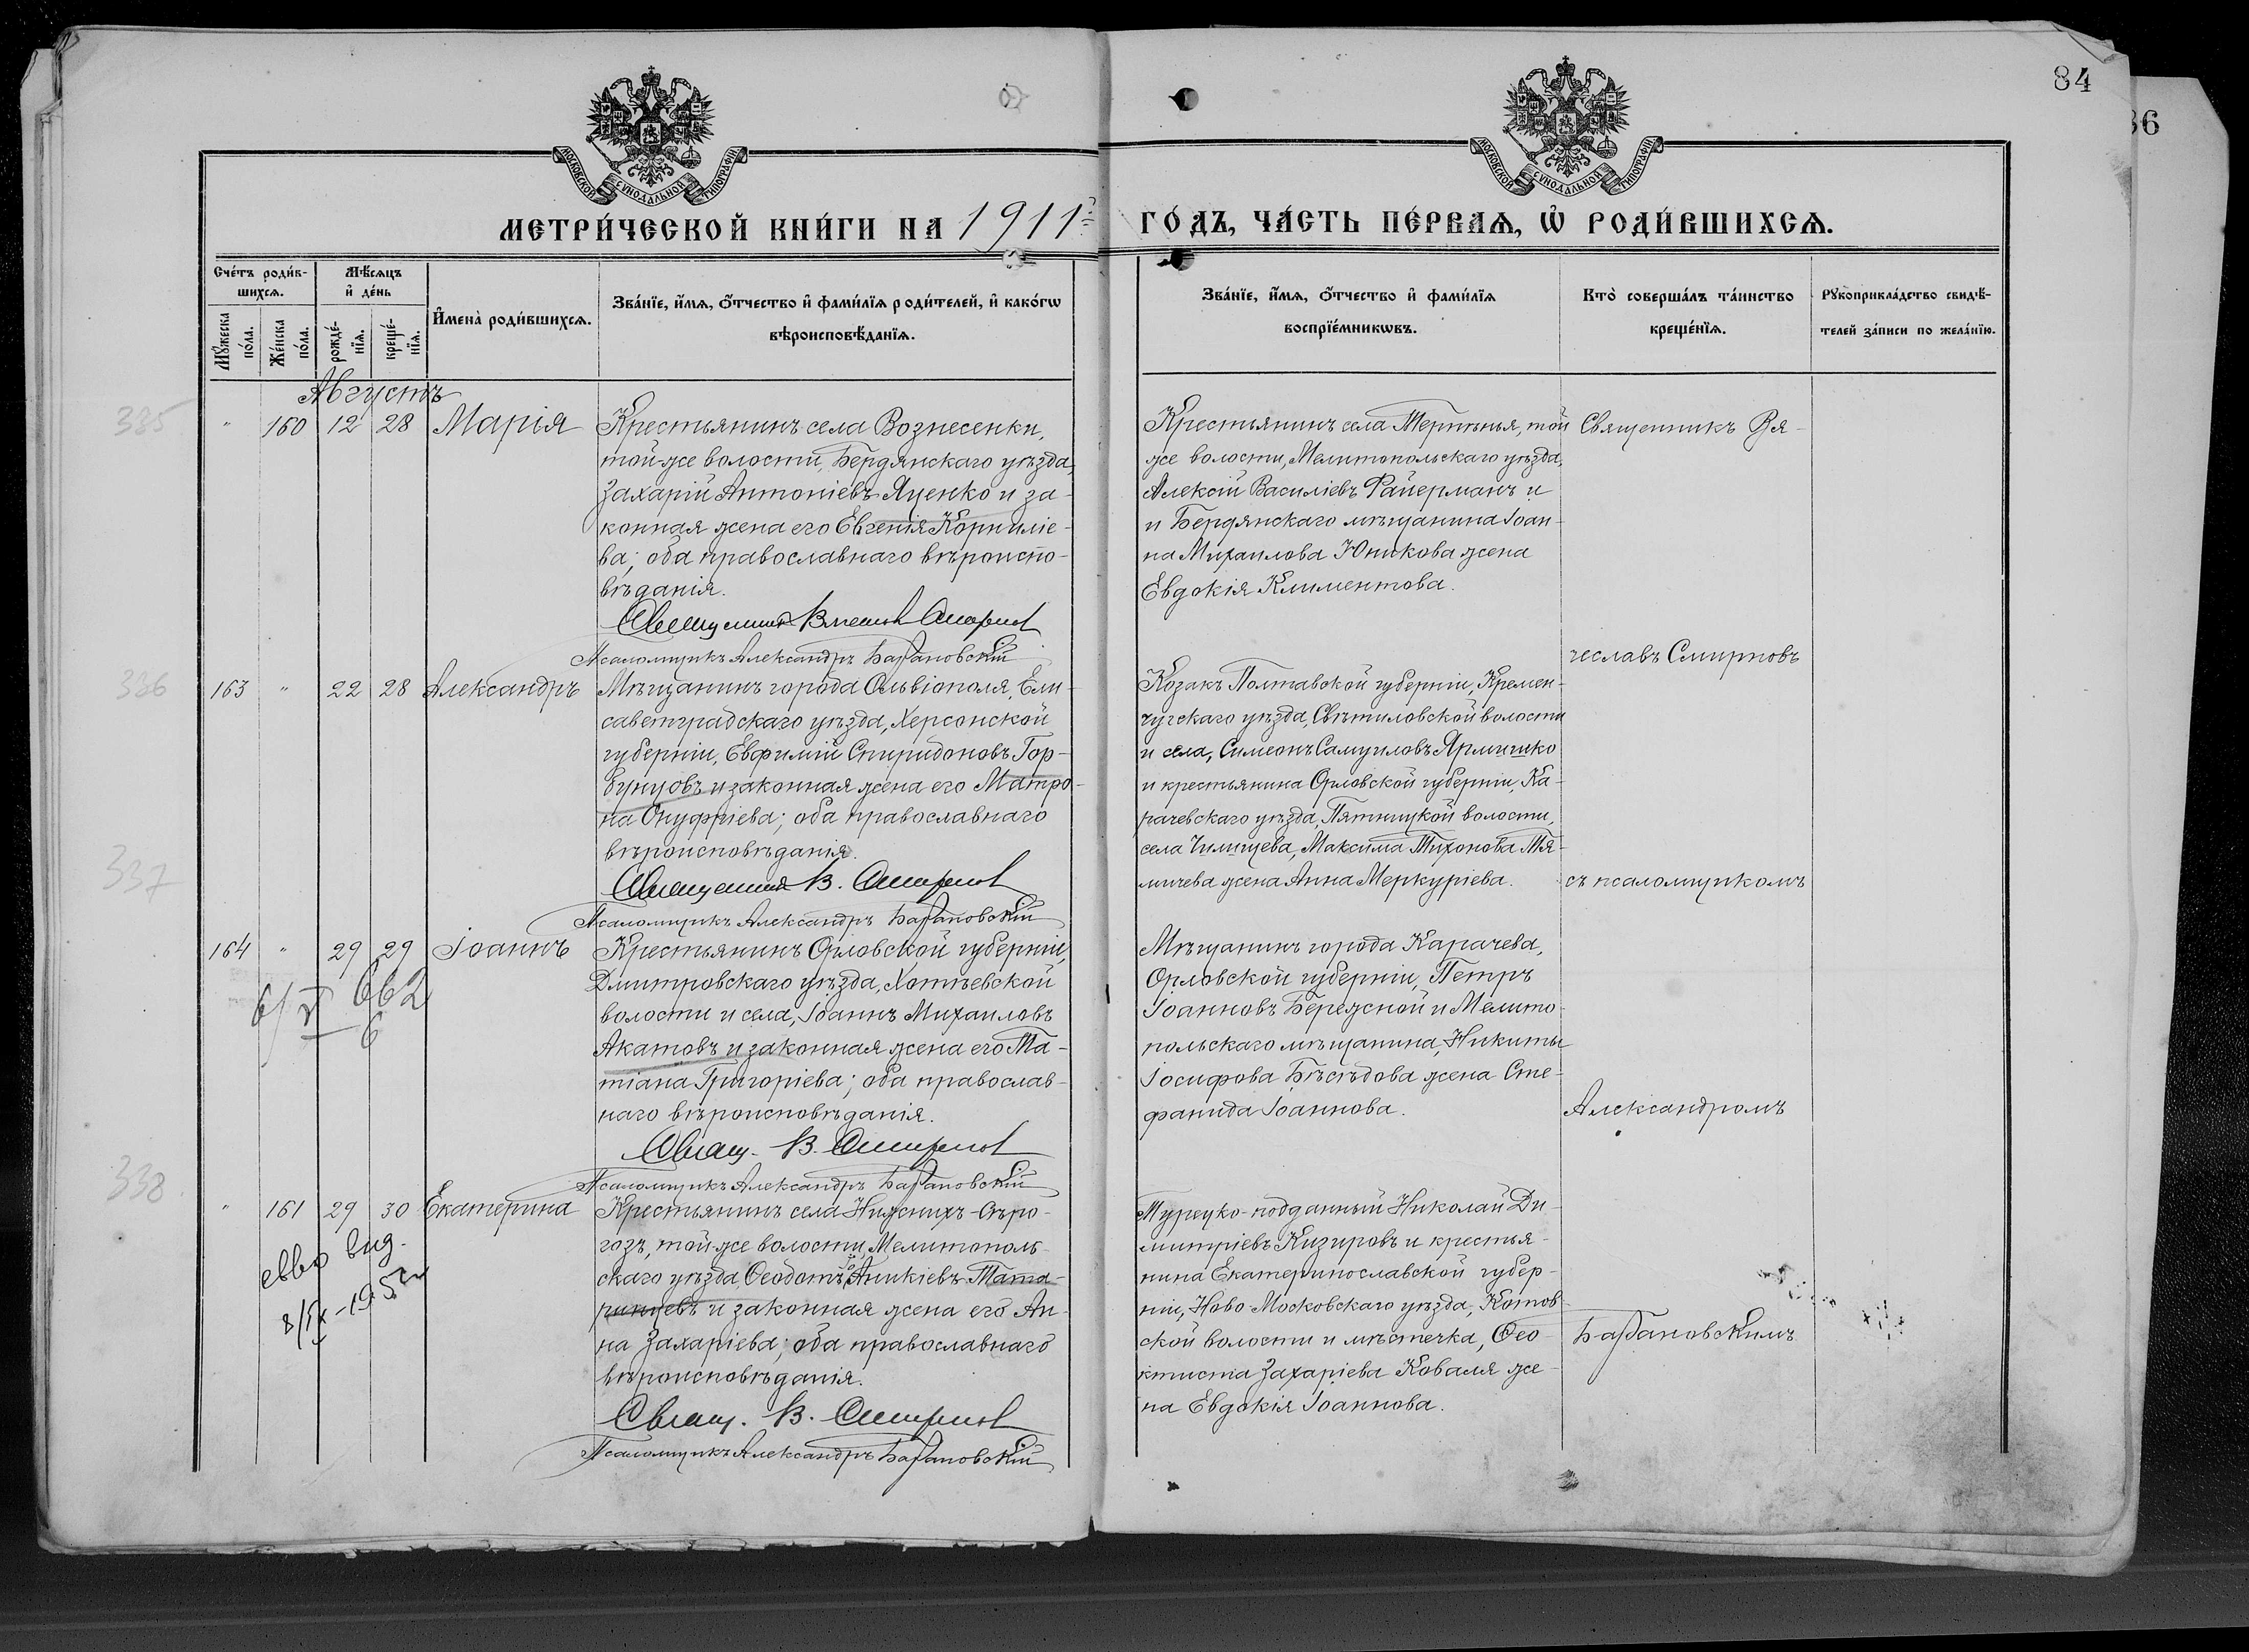 84
36
МОСКОВСКОЙ СѴНОДАЛЬНОЙ ТИПОГРАФІИ
МОСКОВСКОЙ СѴНОДАЛЬНОЙ ТИПОГРАФІИ
МЕТРИ́ЧЕСКОЙ КНИ́ГИ НА 1911 й ГО́ДЪ, ЧА́СТЬ ПЕ́РВАѦ, Ѡ РОДИ́ВШИХСѦ.
Сче́тъ роди́в-
шихсѧ.
Мѣ́сѧцъ
и҆ де́нь
Мꙋ́жеска по́ла.
Же́нска по́ла.
рожде́-
нїѧ.
креще́-
нїѧ.
И҆мена̀ роди́вшихсѧ.
Зва́нїе, и҆́мѧ, ѻ҆́тчество и҆ фами́лїѧ роди́телей, и҆ како́гѡ
вѣроисповѣ́данїѧ.
Зва́нїе, и҆́мѧ, ѻ҆́тчество и҆ фами́лїѧ
воспрїе́мникѡвъ.
Кто̀ соверша́лъ та́инство
креще́нїѧ.
Рꙋкоприкла́дство свидѣ́-
телей за́писи по жела́нїю.
Августъ
335
" 160 12 28 Марія
Крестьянинъ села Вознесенки,
той-же волости, Бердянскаго уѣзда,
Захарій Антоніевъ Яценко и за-
конная жена его Евгенія Корниліе-
ва; оба православнаго вѣроиспо-
вѣданія.
Священникъ Вячеслав Смирнов
Псаломщикъ Александръ Барановскій
Крестьянинъ села Терпѣнья, той
же волости, Мелитопольскаго уѣзда,
Алексій Василіевъ Файерманъ и
и Бердянскаго мѣщанина Іоан-
на Михаилова Юшкова жена
Евдокія Климентова.
Священникъ Вя-
чеславъ Смирновъ
336
163 " 22 28 Александръ
Мѣщанинъ города Ольвіополя, Ели-
саветградскаго уѣзда, Херсонской
губерніи, Евфимій Спиридоновъ Гор-
бунцовъ и законная жена его Матро-
на Онуфріева; оба православнаго
вѣроисповѣданія.
Священник В. Смирнов
Псаломщикъ Александръ Барановскій
Козакъ Полтавской губерніи, Кремен-
чугскаго уѣзда, Свѣтиловской волости
и села, Симеонъ Самуиловъ Ярмишко
и крестьянина Орловской губерніи, Ка-
рачевскаго уѣзда, Пятницкой волости,
села Чилищева, Максима Тихонова Тя-
мичева жена Анна Меркуріева.
съ псаломщикомъ
337
164 " 29 29 Іоаннъ
662
6
Крестьянинъ Орловской губерніи,
Дмитровскаго уѣзда, Хотѣевской
волости и села, Іоаннъ Михаиловъ
Акатовъ и законная жена его Та-
тіана Григоріева; оба православ-
наго вѣроисповѣданія.
Свящ. В. Смирнов
Псаломщикъ Александръ Барановскій
Мѣщанинъ города Карачева,
Орловской губерніи, Петръ
Іоанновъ Бережной и Мелито-
польскаго мѣщанина, Никиты
Іосифова Бѣсѣдова жена Сте-
фанида Іоаннова.
Александромъ
338
" 161 29 30 Екатерина
Крестьянинъ села Нижнихъ-Сѣро-
гозъ, той же волости, Мелитополь-
скаго уѣзда Ѳеодотъ Аникіевъ Тата-
ринцевъ и законная жена его Ан-
на Захаріева; оба православнаго
вѣроисповѣданія.
Свящ. В. Смирнов
Псаломщикъ Александръ Барановскій
Турецко-подданный Николай Ди-
митріевъ Кизировъ и крестья-
нина Екатеринославской губер-
ніи, Ново-Московскаго уѣзда, Котов-
ской волости и мѣстечка, Ѳео-
ктиста Захаріева Коваля же-
на Евдокія Іоаннова.
Барановскимъ